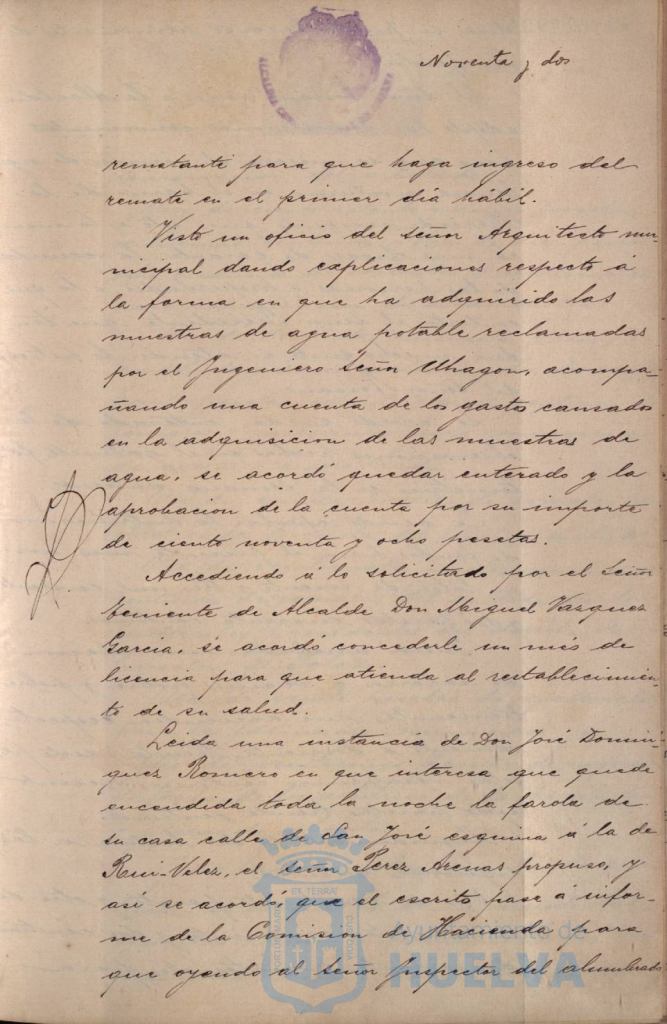 Noventa y dos
rematante para que haga ingreso del
remate en el primer dia hábil.
Visto un oficio del señor Arquitecto mu-
nicipal dando explicaciones respecto á
la forma en que ha adquirido las
muestras de agua potable reclamadas
por el Ingeniero Señor Uhagon, acompa-
ñando una cuenta de los gastos causados
en la adquisicion de las muestras de
agua, se acordó quedar enterado y la
aprobacion de la cuenta por su importe
de ciento noventa y ocho pesetas.
Accediendo á lo solicitado por el Señor
teniente de Alcalde Don Miguel Vazquez
Garcia, se acordó concederle un més de
licencia para que atienda al restablecimien-
to de su salud.
Leida una instancia de Don José Domin-
guez Romero en que interesa que quede
encendida toda la noche la farola de
su casa calle de San José esquina á la de
Rui-Velez, el señor Perez Arenas propuso, y
así se acordó, que el escrito pase á infor-
me de la Comision de Hacienda para
que oyendo al señor Inspector del alumbrado
Ayuntamiento de
HUELVA